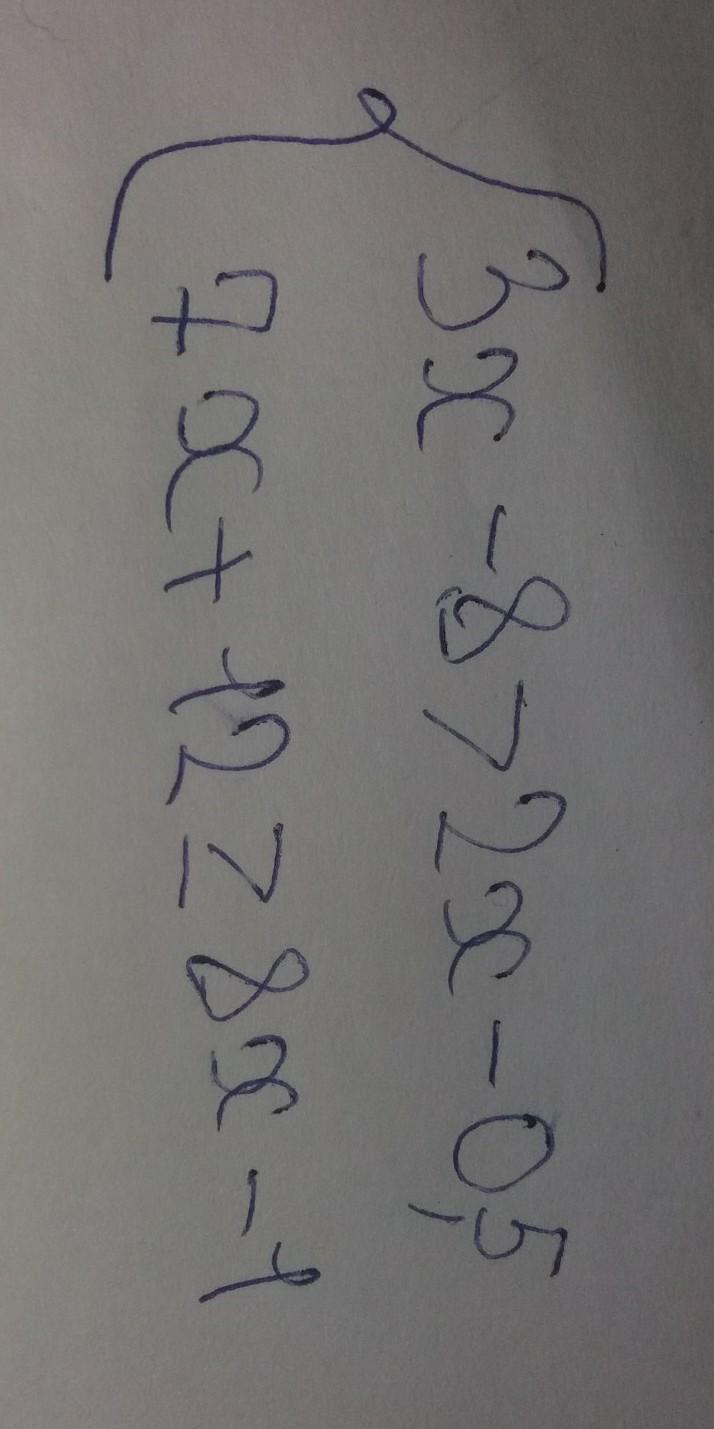 3x - 8 > 2x - 0,5
7x + 12 ≥ 8x - 1